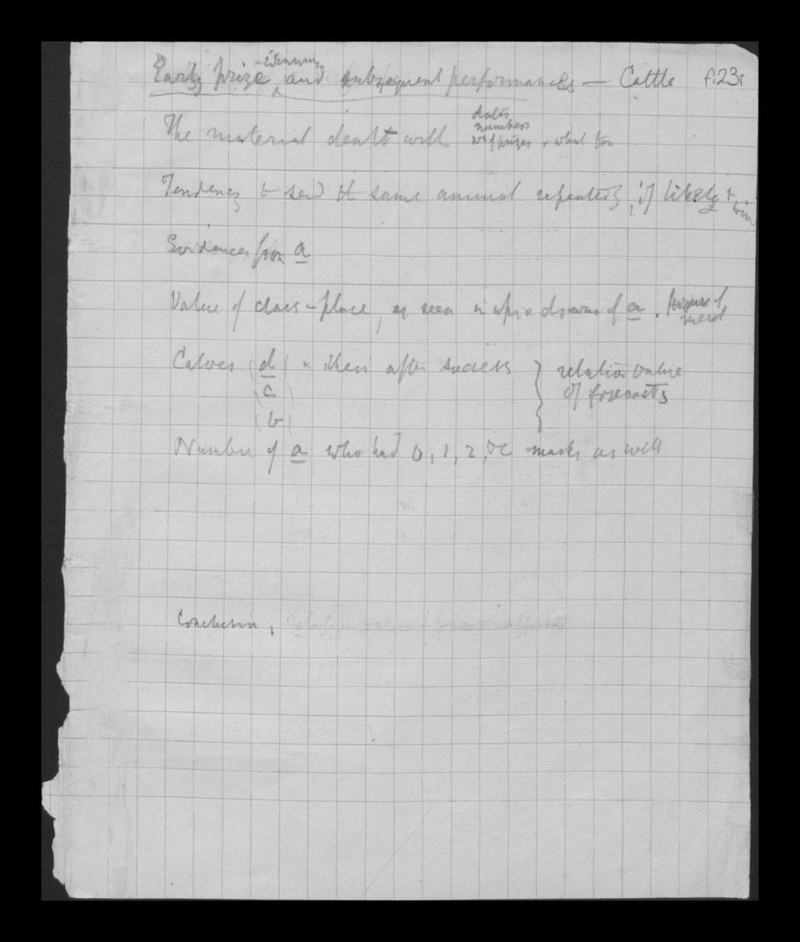 Early prize -winning and subsequent performances — Cattle f.23r
The material dealt with dates
numbers
No of prizes & what for
Tendency to send the same animal repeatedly, if likely to win
Evidences from a
Value of class-place, as seen in ups & downs of a.
Calves (d) & then after success } relative value
(c) of forecasts
(b)
Number of a who had 0, 1, 2, &c marks as well
Conclusion,